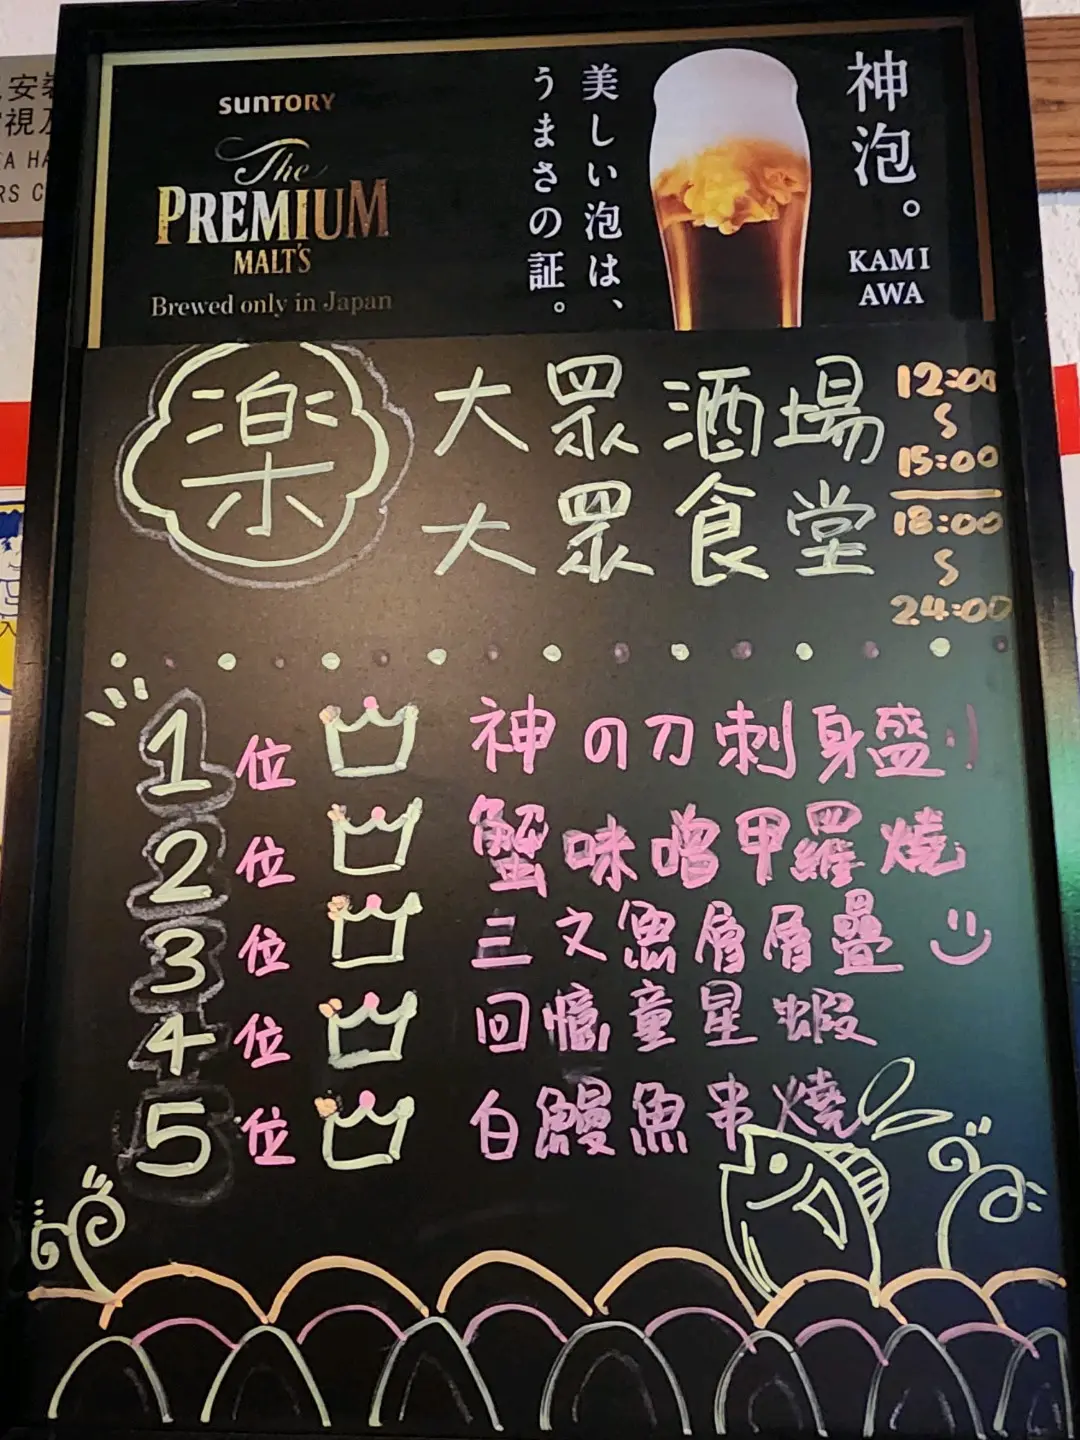 安裝
視及
EA HA
RS C
SUNTORY
The
PREMIUM
MALT'S
Brewed only in Japan
美しい泡は、
うまさの証。
神泡。
KAMI
AWA
楽
大眾酒場
大眾食堂
12:00
~
15:00
18:00
~
24:00
1位 神の刀刺身盛!
2位 蟹味噌甲羅燒
3位 三文魚層層疊
4位 回憶童星蝦
5位 白鰻魚串燒